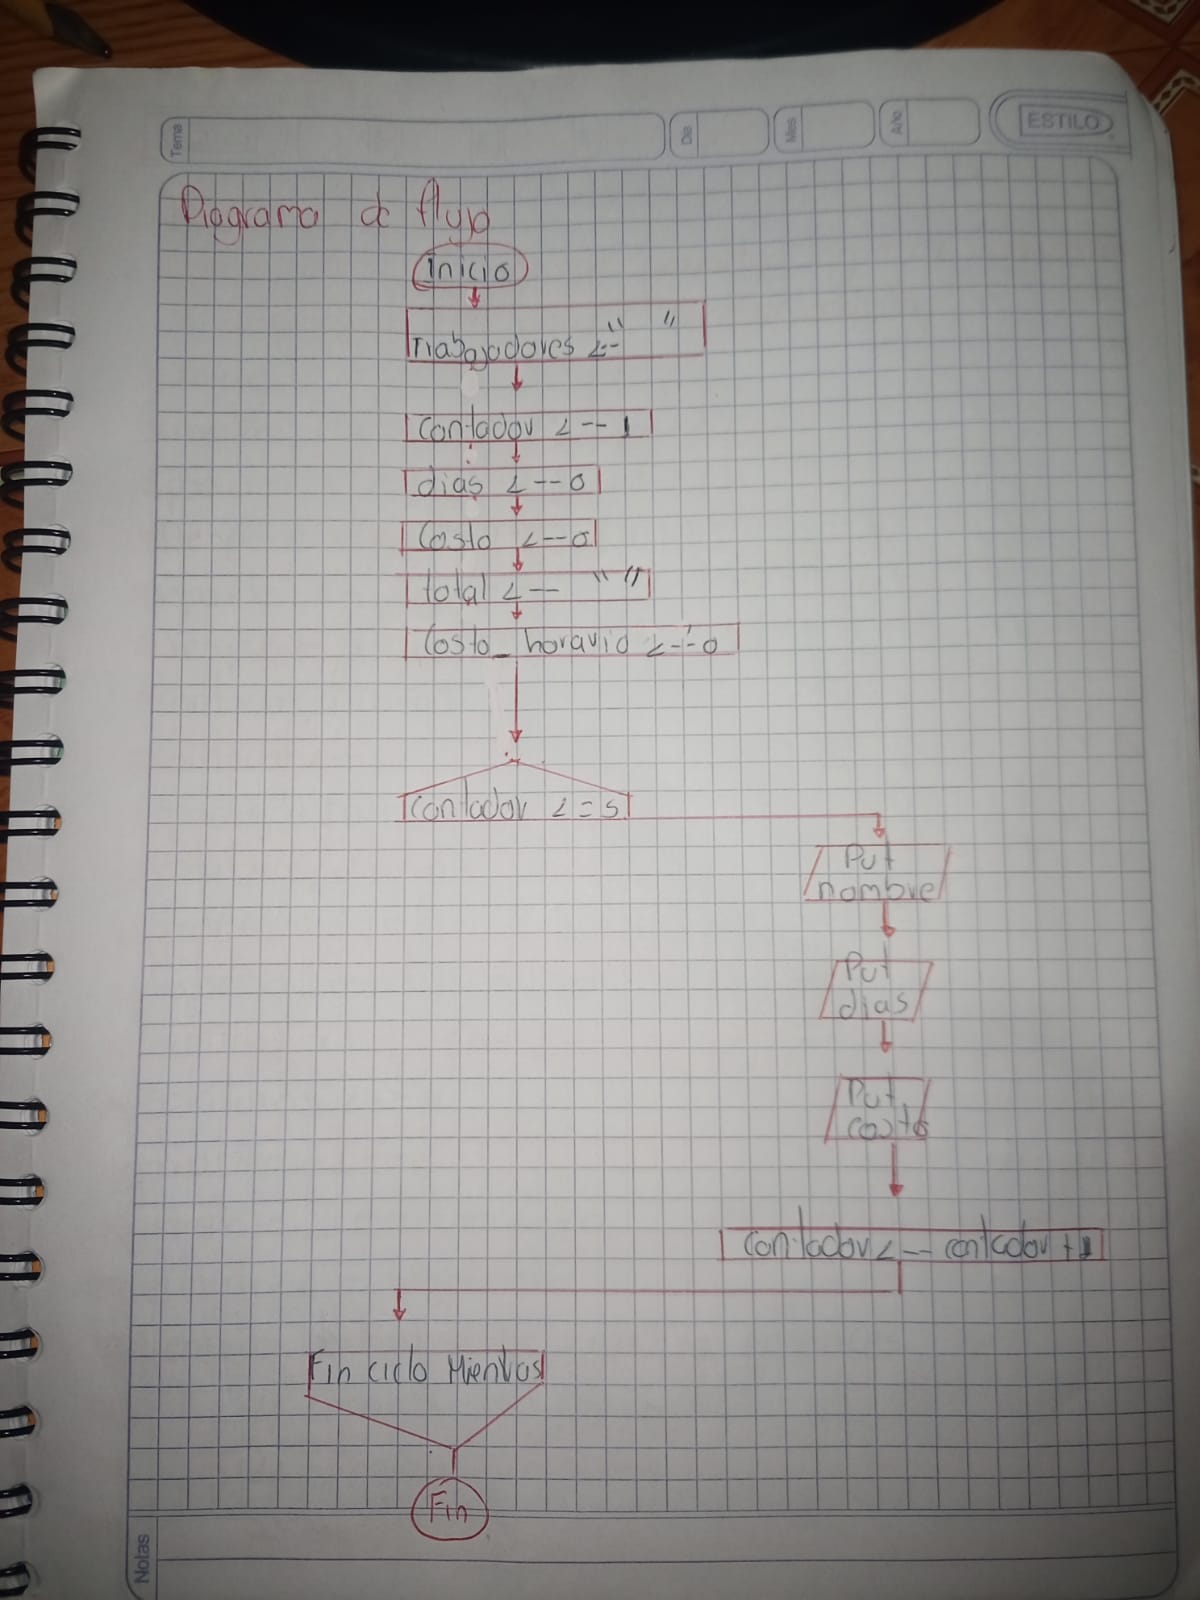 Tema
Dia
Mes
Año
ESTILO
Diagrama de flujo
Inicio
Trabajadores <-- " "
Contador <-- 1
dias <-- 0
Costo <-- 0
total <-- " "
Costo_horario <-- 0
Contador <= 5
Put
nombre
Put
dias
Put
costo
Contador <-- contador +1
Fin ciclo Mientras
Fin
Notas